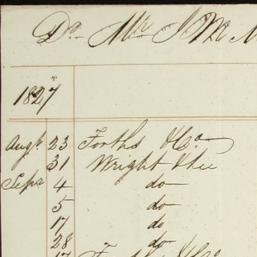 Dr. Mr J. M
1827
Augt 23 Forths & Co
31 Wright &
Sepr 4 do
5 do
17 do
28 do
17